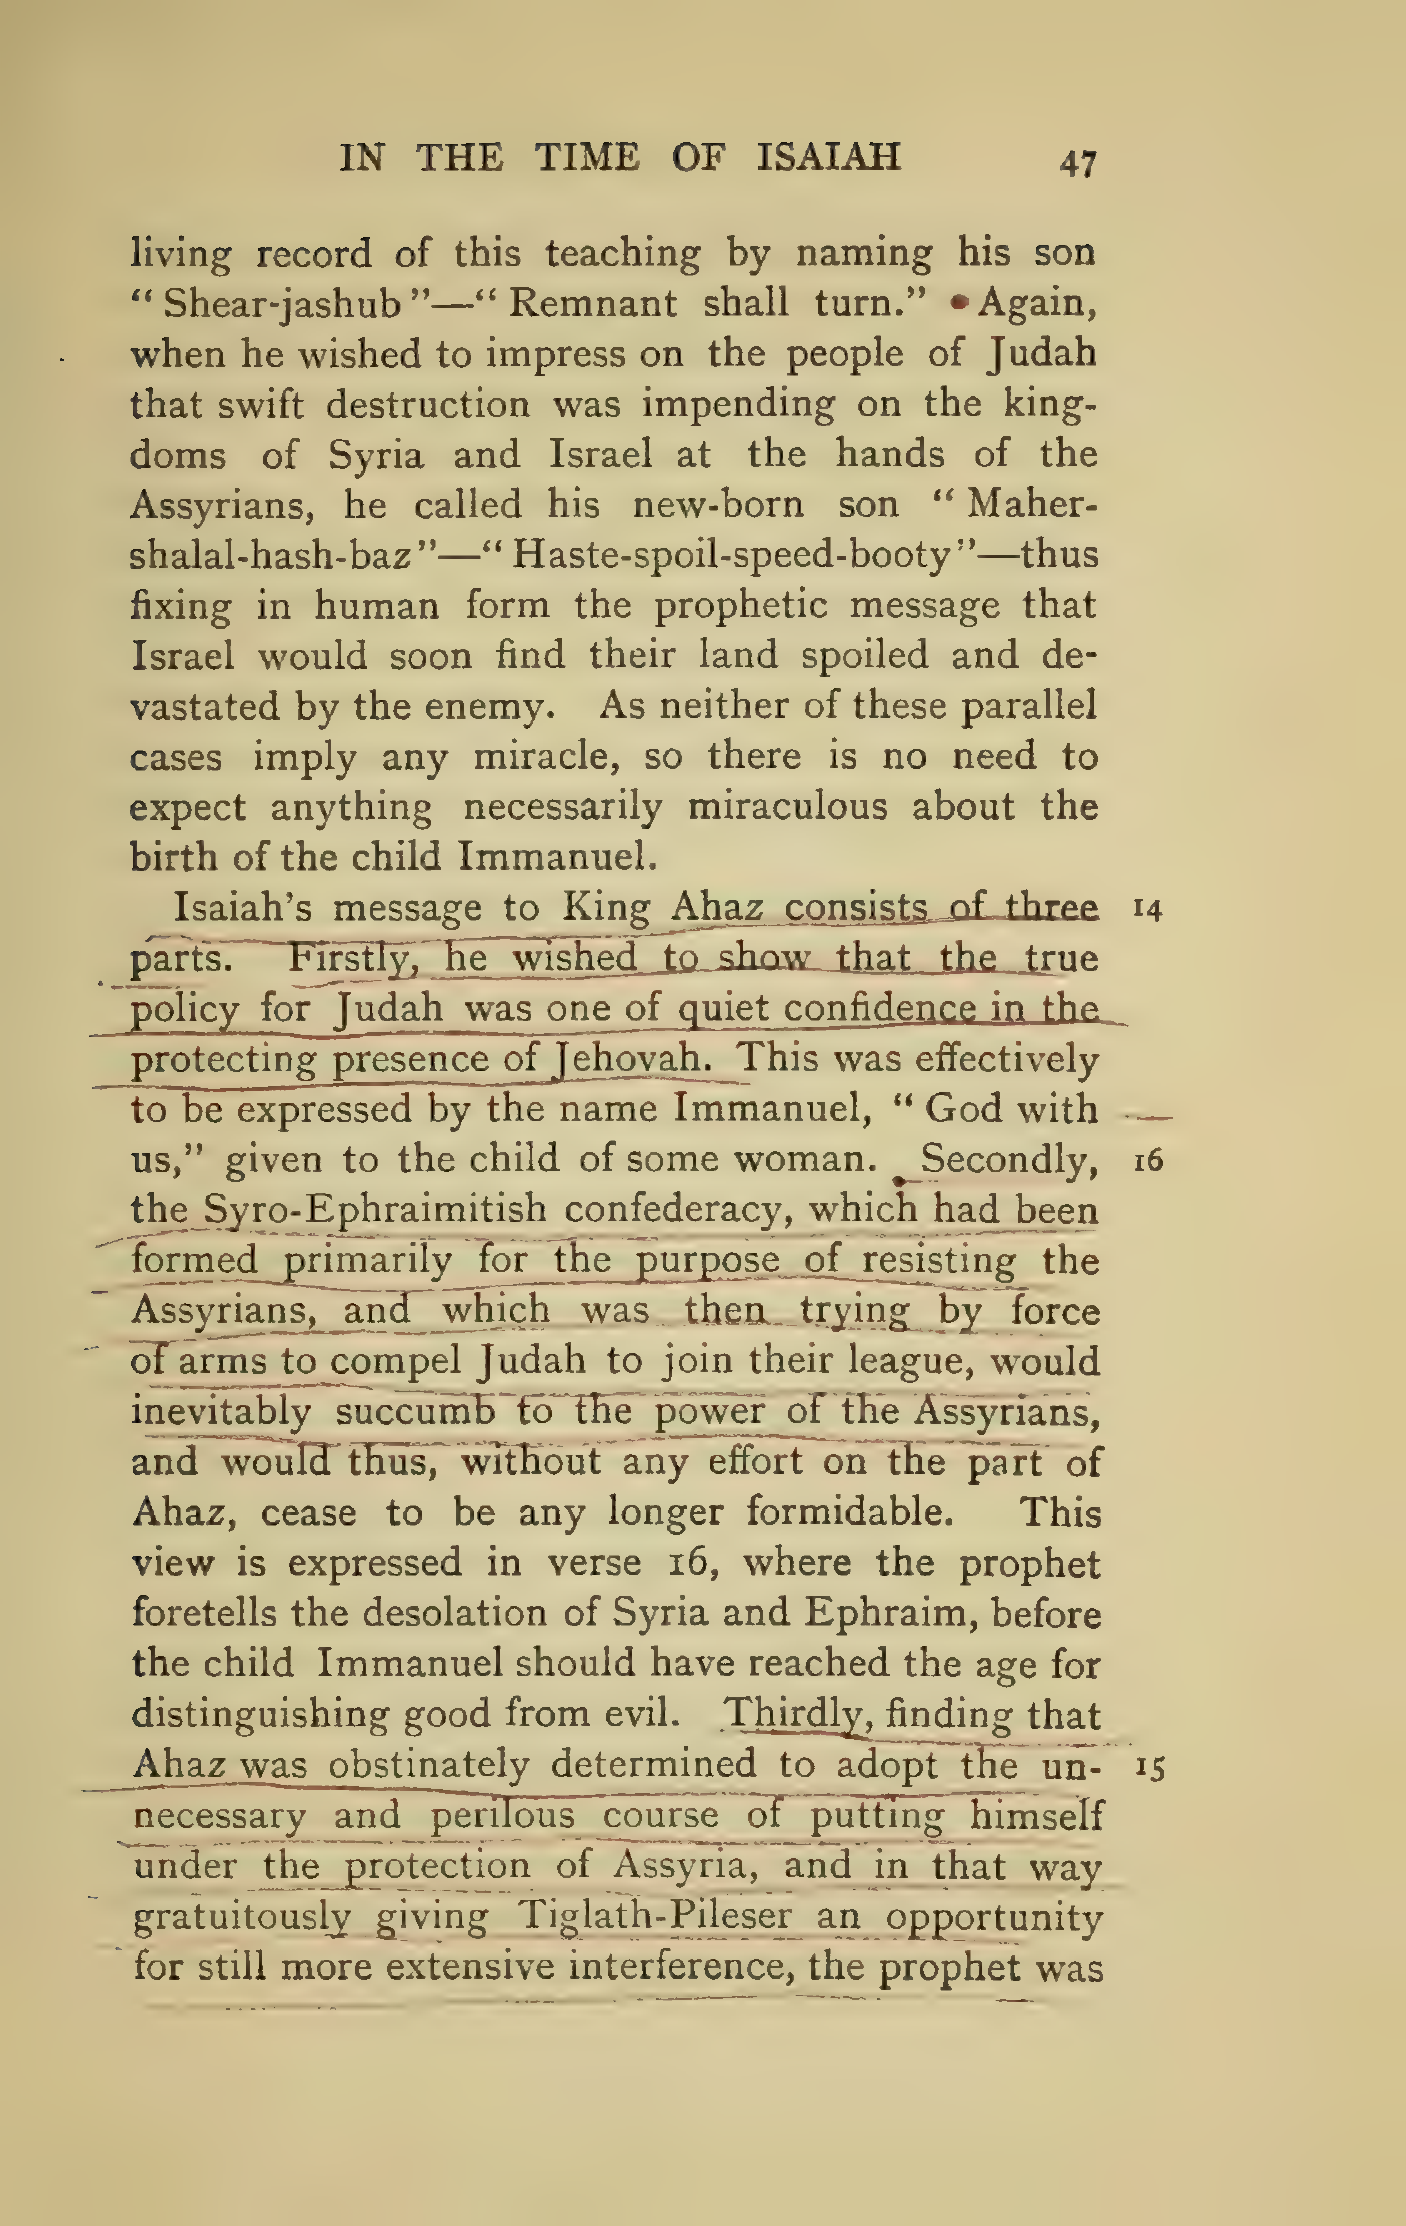 IN THE TIME OF ISAIAH 47
living record of this teaching by naming his son
“ Shear-jashub ”—“ Remnant shall turn.” Again,
when he wished to impress on the people of Judah
that swift destruction was impending on the king-
doms of Syria and Israel at the hands of the
Assyrians, he called his new-born son “ Maher-
shalal-hash-baz”—“ Haste-spoil-speed-booty”—thus
fixing in human form the prophetic message that
Israel would soon find their land spoiled and de-
vastated by the enemy. As neither of these parallel
cases imply any miracle, so there is no need to
expect anything necessarily miraculous about the
birth of the child Immanuel.
Isaiah’s message to King Ahaz consists of three 14
parts. Firstly, he wished to show that the true
policy for Judah was one of quiet confidence in the
protecting presence of Jehovah. This was effectively
to be expressed by the name Immanuel, “ God with
us,” given to the child of some woman. Secondly, 16
the Syro-Ephraimitish confederacy, which had been
formed primarily for the purpose of resisting the
Assyrians, and which was then trying by force
of arms to compel Judah to join their league, would
inevitably succumb to the power of the Assyrians,
and would thus, without any effort on the part of
Ahaz, cease to be any longer formidable. This
view is expressed in verse 16, where the prophet
foretells the desolation of Syria and Ephraim, before
the child Immanuel should have reached the age for
distinguishing good from evil. Thirdly, finding that
Ahaz was obstinately determined to adopt the un- 15
necessary and perilous course of putting himself
under the protection of Assyria, and in that way
gratuitously giving Tiglath-Pileser an opportunity
for still more extensive interference, the prophet was